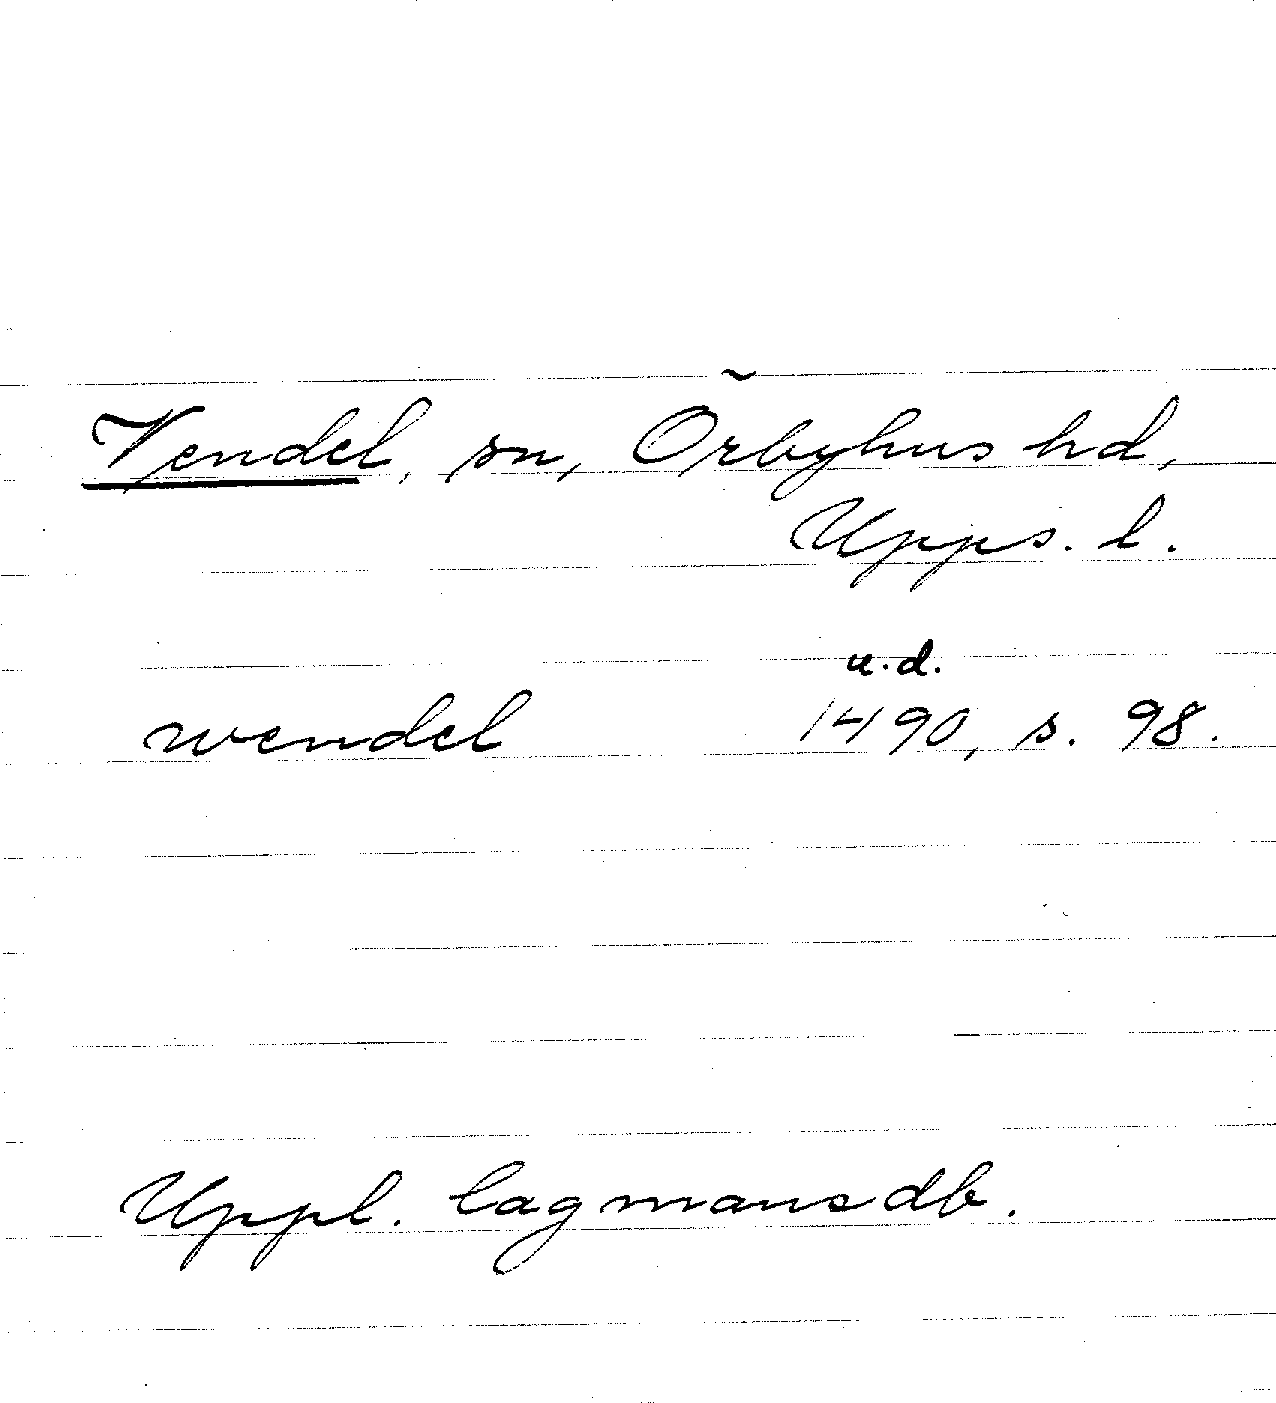 Vendel, sn, Örbyhus hd,
Upps. l.
u.d.
wendel 1490, s. 98.
Uppl. lagmansdb.